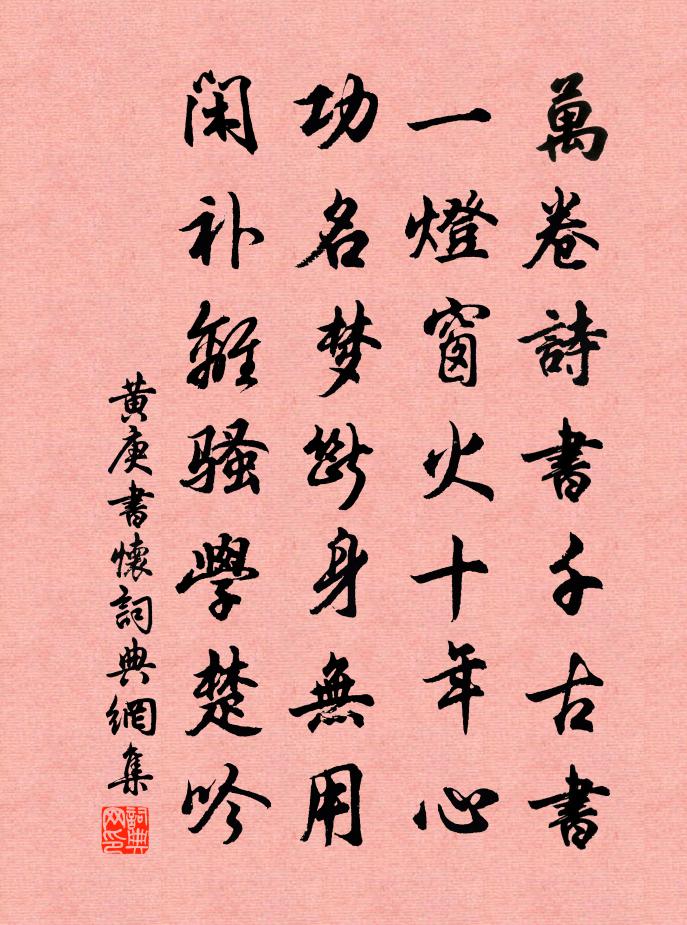 萬卷詩書千古書
一燈窗火十年心
功名梦斷身無用
閑补離騷學楚吟
黄庚書懷詞典網集
詞典网印